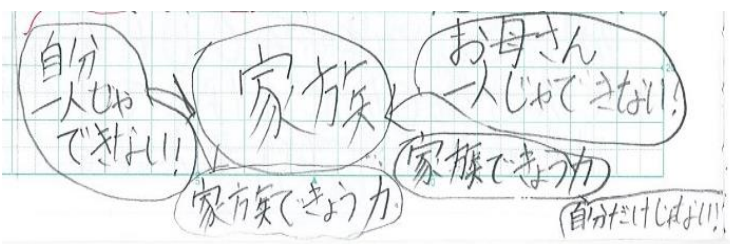 自分
一人じゃ
できない!
家族
お母さん
一人じゃできない!
家族できょう力
家族できょう力
自分だけじゃない!